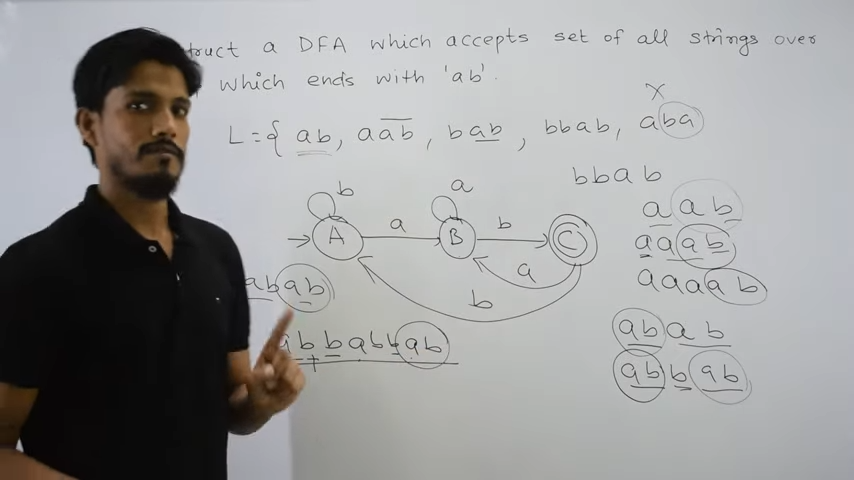 truct a DFA which accepts set of all strings over
which ends with 'ab'.
X
L = { ab, aab, bab, bbab, aba
bbab
b a
aab
A a B b C
aaab
a
abab
aaaab
b
abab
abbabbab
abbab